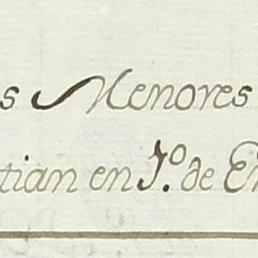 s Menores
tian en 1º de En